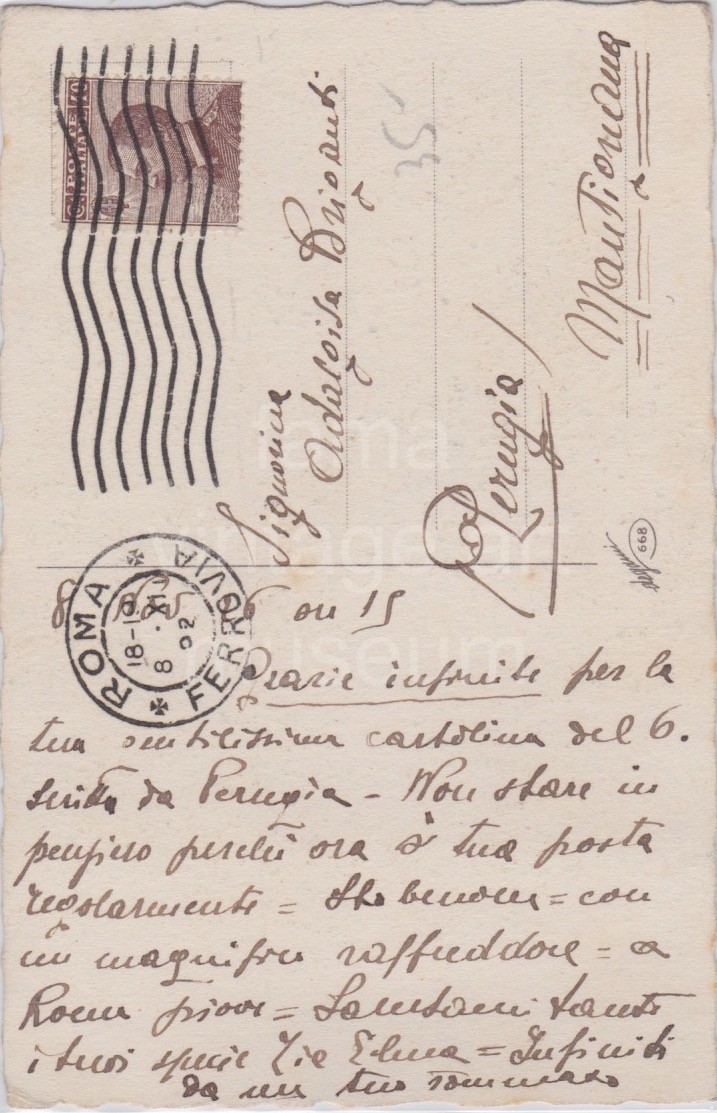 POSTE ITALIANE
Signorina
Adalgisa Briganti
Perugia
Mantignana
35
668
ROMA FERROVIA
18-19
8 . XI
8 Nov 6 ore 15
Grazie infinite per la
tua gentilissima cartolina del 6.
scritta da Perugia - Non stare in
pensiero perchè ora è tua posta
regolarmente = Sto benone = con
un magnifico raffreddore = a
Roma piove = Salutami tanto
i tuoi specie Zia Elma = Infiniti
da un tuo
foma
vintage art
museum